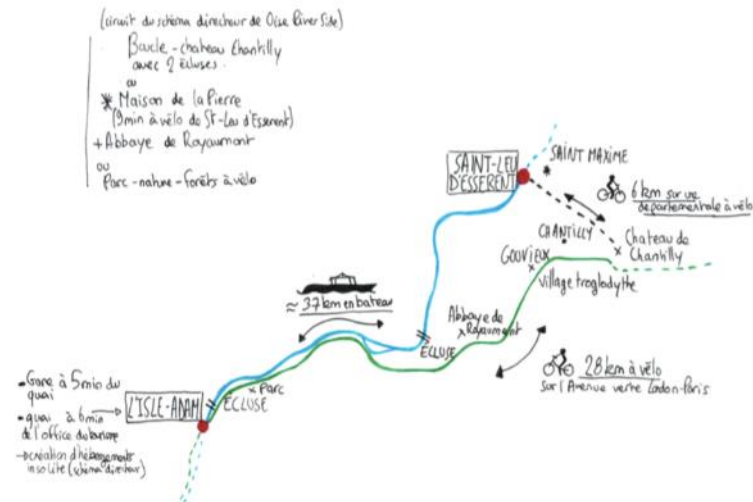 (circuit du schéma directeur de Oise River Side)
Boucle - chateau Chantilly
avec 2 écluses.
ou
* Maison de la Pierre
(9min à vélo de St-Leu d'Esserent)
+ Abbaye de Royaumont
ou
Parc - nature - forêts à vélo
SAINT-LEU
D'ESSERENT
SAINT MAXIME
6 km sur une
départementale à vélo
CHANTILLY
Chateau de
Chantilly
GOUVIEUX
village troglodythe
≈ 37 km en bateau
Abbaye de
Royaumont
ÉCLUSE
28 km à vélo
sur l'Avenue verte London-Paris
Parc
ÉCLUSE
L'ISLE-ADAM
- Gare à 5min du
quai
- quai à 6min
de l'office du tourisme
→ création d'hébergements
insolite (schéma directeur)